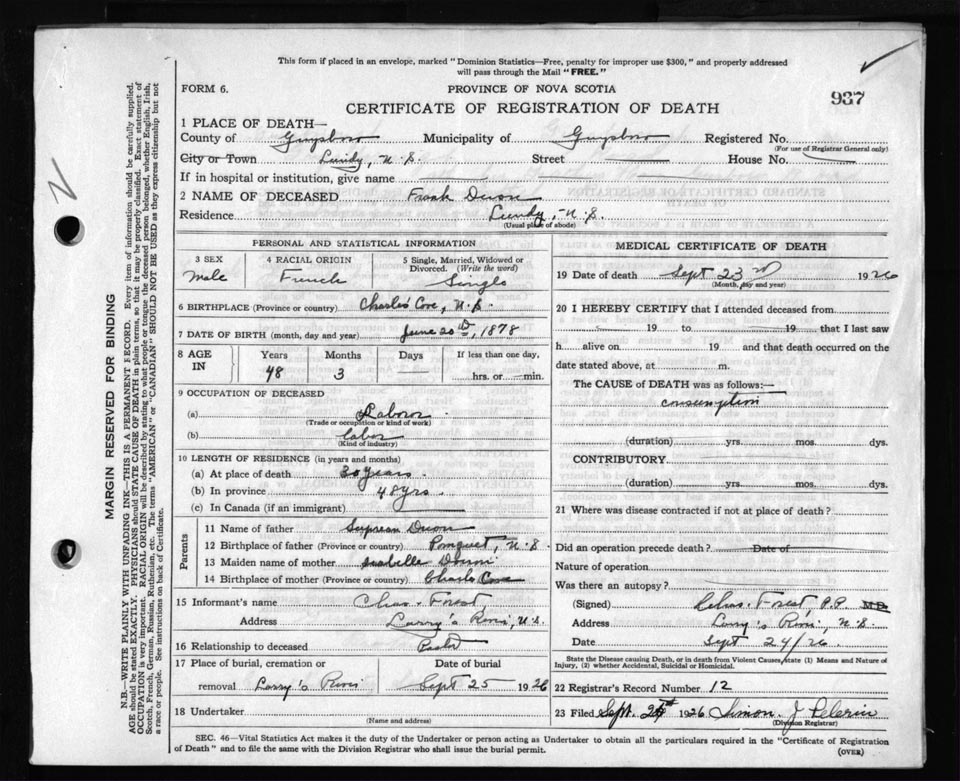 This form if placed in an envelope, marked "Dominion Statistics—Free, penalty for improper use $300," and properly addressed
will pass through the Mail "FREE."
FORM 6. PROVINCE OF NOVA SCOTIA 937
CERTIFICATE OF REGISTRATION OF DEATH
1 PLACE OF DEATH—
County of Guysboro Municipality of Guysboro Registered No.
(For use of Registrar General only)
City or Town Lundy, N.S. Street House No.
If in hospital or institution, give name
2 NAME OF DECEASED Frank Duon
Residence Lundy, N.S.
(Usual place of abode)
PERSONAL AND STATISTICAL INFORMATION
3 SEX 4 RACIAL ORIGIN 5 Single, Married, Widowed or
Divorced. (Write the word)
Male French Single
6 BIRTHPLACE (Province or country) Charles Cove, N.S.
7 DATE OF BIRTH (month, day and year) June 20th, 1878
8 AGE IN Years Months Days If less than one day,
48 3 — hrs. or — min.
9 OCCUPATION OF DECEASED
(a) Labour
(Trade or occupation or kind of work)
(b) labor
(Kind of industry)
10 LENGTH OF RESIDENCE (in years and months)
(a) At place of death 30 years
(b) In province 48 yrs.
(c) In Canada (if an immigrant)
Parents
11 Name of father Duon
12 Birthplace of father (Province or country) Pomquet, N.S.
13 Maiden name of mother Isabelle
14 Birthplace of mother (Province or country) Charles Cove
15 Informant's name Chas. Forest,
Address Larry's River, N.S.
16 Relationship to deceased Pastor
17 Place of burial, cremation or Date of burial
removal Larry's River Sept 25 1926
18 Undertaker
(Name and address)
MEDICAL CERTIFICATE OF DEATH
19 Date of death Sept 23rd 1926
(Month, day and year)
20 I HEREBY CERTIFY that I attended deceased from
19 to 19 that I last saw
h alive on 19 and that death occurred on the
date stated above, at m.
The CAUSE of DEATH was as follows:—
consumption
(duration) yrs. mos. dys.
CONTRIBUTORY
(duration) yrs. mos. dys.
21 Where was disease contracted if not at place of death?
Did an operation precede death? Date of
Nature of operation
Was there an autopsy?
(Signed) Chas. Forest, P.P. M.D.
Address Larry's River, N.S.
Date Sept 24/26.
State the Disease causing Death, or in death from Violent Causes, state (1) Means and Nature of
Injury, (2) whether Accidental, Suicidal or Homicidal.
22 Registrar's Record Number 12
23 Filed Sept. 1926 Simon J Pelerin
(Division Registrar)
SEC. 46—Vital Statistics Act makes it the duty of the Undertaker or person acting as Undertaker to obtain all the particulars required in the "Certificate of Registration
of Death" and to file the same with the Division Registrar who shall issue the burial permit. (OVER)
MARGIN RESERVED FOR BINDING
N.B—WRITE PLAINLY WITH UNFADING INK—THIS IS A PERMANENT RECORD. Every item of information should be carefully supplied.
AGE should be stated EXACTLY. PHYSICIANS should STATE CAUSE OF DEATH in plain terms, so that it may be properly classified. Exact statement of
OCCUPATION is very important. RACIAL ORIGIN will be described by stating to what people or tongue the deceased person belonged, whether English, Irish,
Scotch, French, German, Russian, Ruthenian, etc. The terms "AMERICAN" or "CANADIAN" SHOULD NOT BE USED as they express citizenship but not
a race or people. See instructions on back of Certificate.